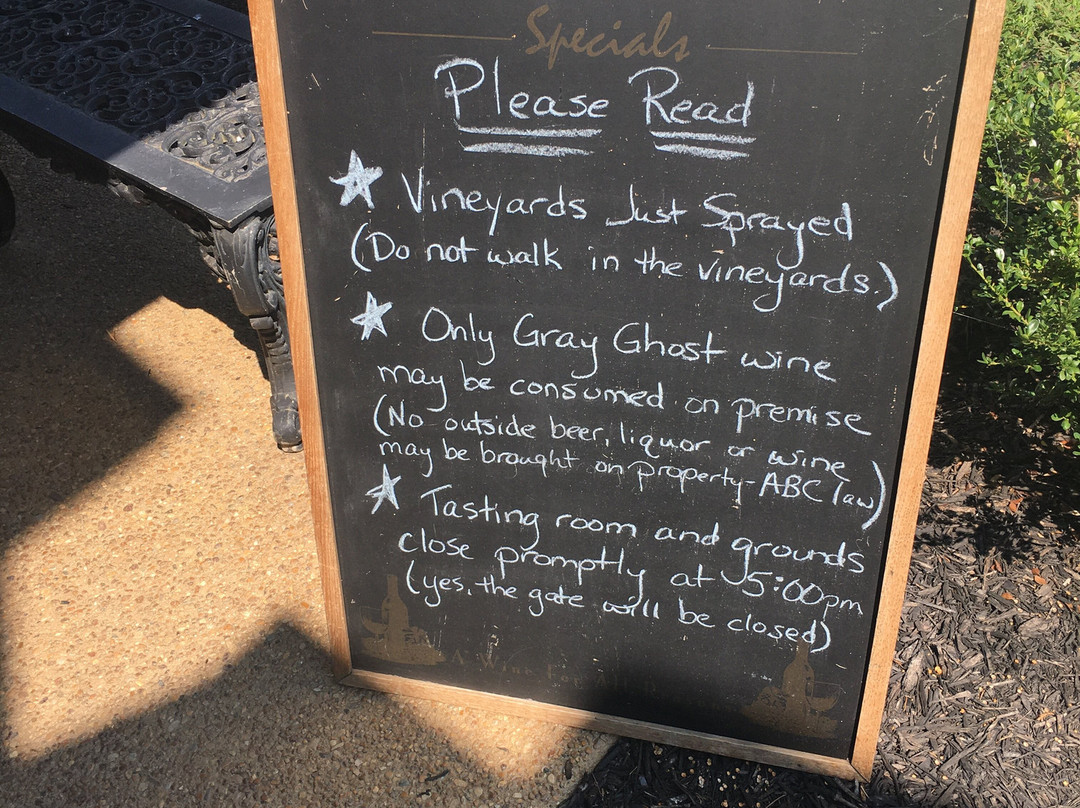 Specials
Please Read
Vineyards Just Sprayed
(Do not walk in the vineyards.)
Only Gray Ghost wine
may be consumed on premise
(No outside beer, liquor or wine
may be brought on property-ABC law)
Tasting room and grounds
close promptly at 5:00pm
(yes, the gate will be closed)